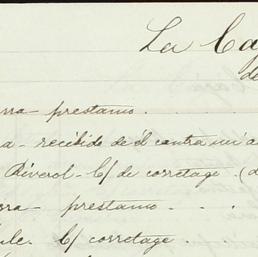 La Ca
de
rra- prestamo . . .
a- recibido de él contra mi a
Riverol- C/ de corretage. (d
rra- prestamo . . .
C/ corretage .